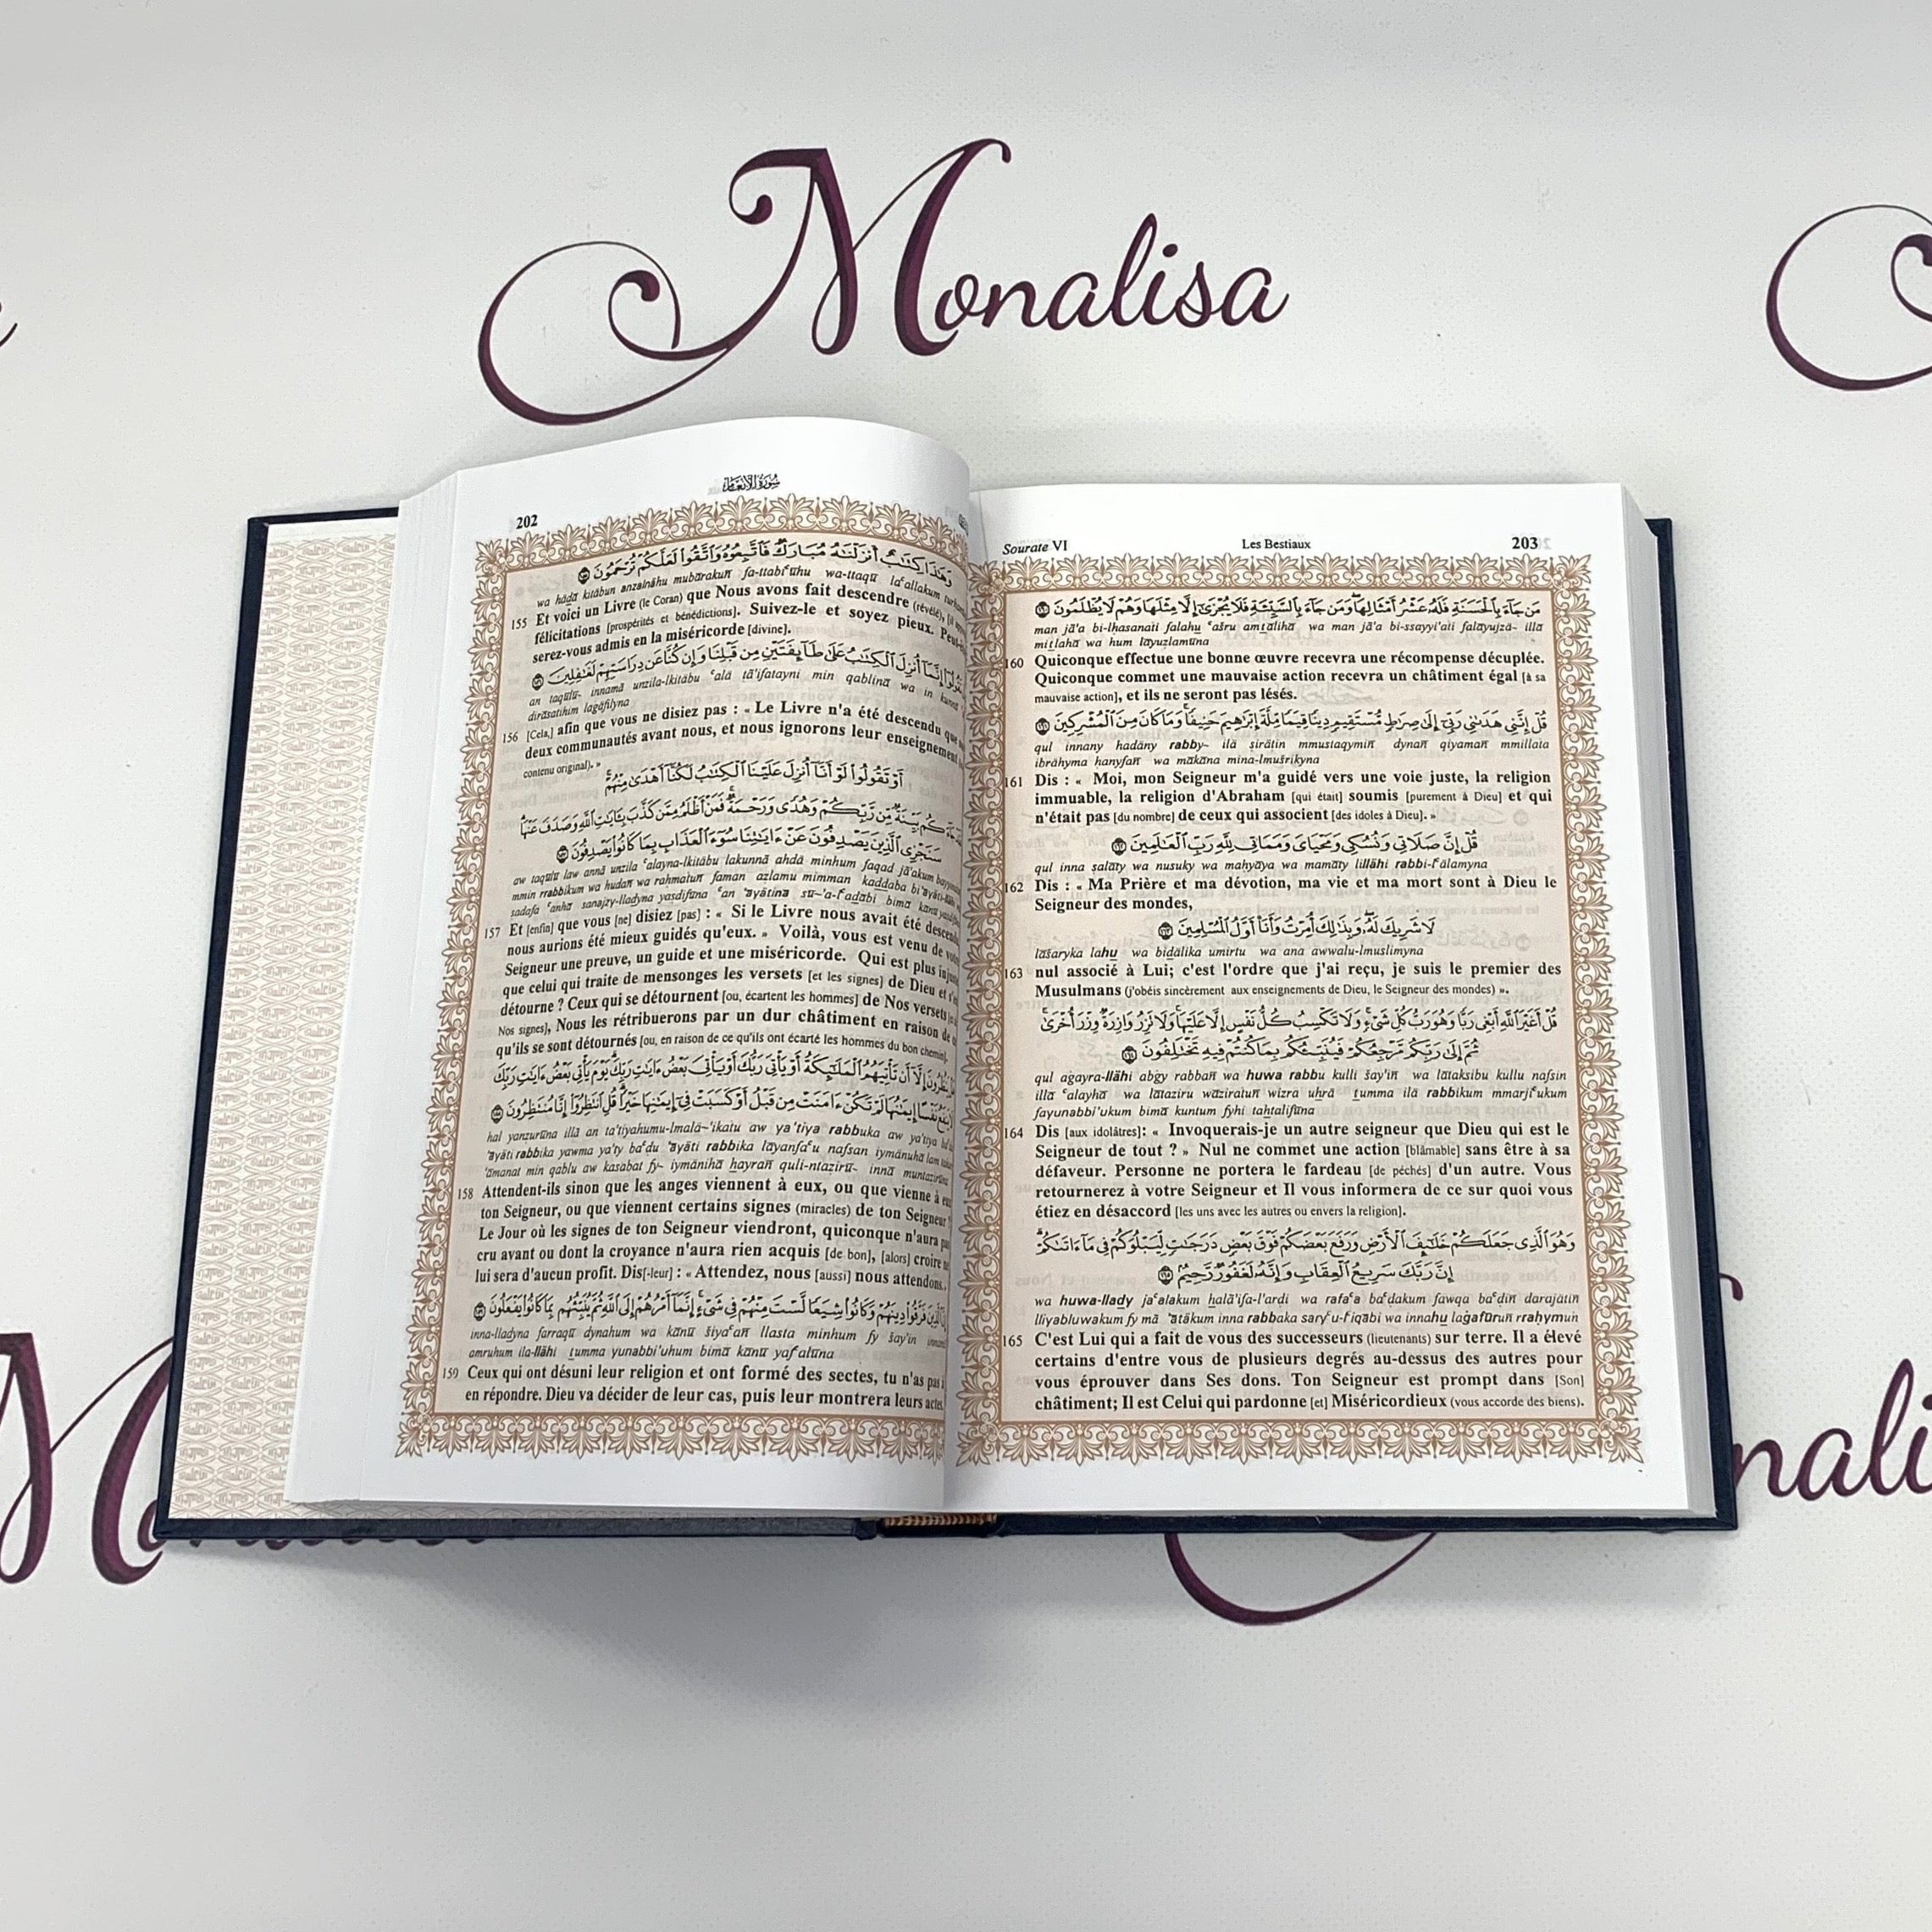 Monalisa
سورة الأنعام
202
وَهَٰذَا كِتَٰبٌ أَنزَلْنَٰهُ مُبَارَكٌ فَٱتَّبِعُوهُ وَٱتَّقُوا۟ لَعَلَّكُمْ تُرْحَمُونَ
wa hāḏā kitābun anzalnāhu mubārakuñ fa-ttabiʿūhu wa-ttaqū laʿallakum
155 Et voici un Livre (le Coran) que Nous avons fait descendre (révélé),
félicitations [prospérités et bénédictions]. Suivez-le et soyez pieux.
serez-vous admis en la miséricorde [divine].
إِنَّمَآ أُنزِلَ ٱلْكِتَٰبُ عَلَىٰ طَآئِفَتَيْنِ مِن قَبْلِنَا وَإِن كُنَّا عَن دِرَاسَتِهِمْ لَغَٰفِلِينَ
an taqūlū- innamā unzila-lkitābu ʿalā ṭā'ifatayni min qablinā wa in kunnā
dirāsatihim lagāfilyna
156 [Cela,] afin que vous ne disiez pas : « Le Livre n'a été descendu que
deux communautés avant nous, et nous ignorons leur enseignement
contenu original). »
أَوْ تَقُولُوا۟ لَوْ أَنَّآ أُنزِلَ عَلَيْنَا ٱلْكِتَٰبُ لَكُنَّآ أَهْدَىٰ مِنْهُمْ
بَيِّنَةٌ مِّن رَّبِّكُمْ وَهُدًى وَرَحْمَةٌ فَمَنْ أَظْلَمُ مِمَّن كَذَّبَ بِـَٔايَٰتِ ٱللَّهِ وَصَدَفَ عَنْهَا
سَنَجْزِى ٱلَّذِينَ يَصْدِفُونَ عَنْ ءَايَٰتِنَا سُوٓءَ ٱلْعَذَابِ بِمَا كَانُوا۟ يَصْدِفُونَ
aw taqūlū law annā unzila ʿalayna-lkitābu lakunnā ahdā minhum faqad jā'akum
mmin rrabbikum wa hudañ wa raḥmatuñ faman aẓlamu mimman kaḏḏaba bi'āyāti-llāhi
ṣadafa ʿanhā sanajzy-lladyna yaṣdifūna ʿan 'āyātinā sū-'a-lʿaḏābi bimā kānū
157 Et [enfin] que vous [ne] disiez [pas] : « Si le Livre nous avait été
nous aurions été mieux guidés qu'eux. » Voilà, vous est venu de
Seigneur une preuve, un guide et une miséricorde. Qui est plus
que celui qui traite de mensonges les versets [et les signes] de Dieu et
détourne ? Ceux qui se détournent [ou, écartent les hommes] de Nos versets
Nos signes], Nous les rétribuerons par un dur châtiment en raison de
qu'ils se sont détournés [ou, en raison de ce qu'ils ont écarté les hommes du bon chemin].
إِلَّآ أَن تَأْتِيَهُمُ ٱلْمَلَٰٓئِكَةُ أَوْ يَأْتِىَ رَبُّكَ أَوْ يَأْتِىَ بَعْضُ ءَايَٰتِ رَبِّكَ يَوْمَ يَأْتِى بَعْضُ ءَايَٰتِ رَبِّكَ
نَفْسًا إِيمَٰنُهَا لَمْ تَكُنْ ءَامَنَتْ مِن قَبْلُ أَوْ كَسَبَتْ فِىٓ إِيمَٰنِهَا خَيْرًا قُلِ ٱنتَظِرُوٓا۟ إِنَّا مُنتَظِرُونَ
hal yanzurūna illā an ta'tiyahumu-lmalā~'ikatu aw ya'tiya rabbuka aw ya'tiya
'āyāti rabbika yawma ya'ty baʿḍu 'āyāti rabbika lāyanfaʿu nafsan iymānuhā lam
'āmanat min qablu aw kasabat fy- iymānihā ḫayrañ quli-ntazirū- innā muntazirūna
158 Attendent-ils sinon que les anges viennent à eux, ou que vienne à
ton Seigneur, ou que viennent certains signes (miracles) de ton Seigneur
Le Jour où les signes de ton Seigneur viendront, quiconque n'aura
cru avant ou dont la croyance n'aura rien acquis [de bon], [alors] croire
lui sera d'aucun profit. Dis[-leur] : « Attendez, nous [aussi] nous attendons.
فَرَّقُوا۟ دِينَهُمْ وَكَانُوا۟ شِيَعًا لَّسْتَ مِنْهُمْ فِى شَىْءٍ إِنَّمَآ أَمْرُهُمْ إِلَى ٱللَّهِ ثُمَّ يُنَبِّئُهُم بِمَا كَانُوا۟ يَفْعَلُونَ
inna-lladyna farraqū dynahum wa kānū šiyaʿañ llasta minhum fy šay'in
amruhum ila-llāhi ṯumma yunabbi'uhum bimā kānū yafʿalūna
159 Ceux qui ont désuni leur religion et ont formé des sectes, tu n'as pas
en répondre. Dieu va décider de leur cas, puis leur montrera leurs actes.
Sourate VI Les Bestiaux 203
مَن جَآءَ بِٱلْحَسَنَةِ فَلَهُۥ عَشْرُ أَمْثَالِهَا وَمَن جَآءَ بِٱلسَّيِّئَةِ فَلَا يُجْزَىٰٓ إِلَّا مِثْلَهَا وَهُمْ لَا يُظْلَمُونَ
man jā'a bi-lḥasanati falahu ʿašru amṯālihā wa man jā'a bi-ssayyi'ati falāyujzā- illā
miṯlahā wa hum lāyuẓlamūna
160 Quiconque effectue une bonne œuvre recevra une récompense décuplée.
Quiconque commet une mauvaise action recevra un châtiment égal [à sa
mauvaise action], et ils ne seront pas lésés.
قُلْ إِنَّنِى هَدَىٰنِى رَبِّىٓ إِلَىٰ صِرَٰطٍ مُّسْتَقِيمٍ دِينًا قِيَمًا مِّلَّةَ إِبْرَٰهِيمَ حَنِيفًا وَمَا كَانَ مِنَ ٱلْمُشْرِكِينَ
qul innany hadāny rabby~ ilā ṣirāṭin mmustaqymiñ dynañ qiyamañ mmillata
ibrāhyma ḥanyfañ wa mākāna mina-lmušrikyna
161 Dis : « Moi, mon Seigneur m'a guidé vers une voie juste, la religion
immuable, la religion d'Abraham [qui était] soumis [purement à Dieu] et qui
n'était pas [du nombre] de ceux qui associent [des idoles à Dieu]. »
قُلْ إِنَّ صَلَاتِى وَنُسُكِى وَمَحْيَاىَ وَمَمَاتِى لِلَّهِ رَبِّ ٱلْعَٰلَمِينَ
qul inna ṣalāty wa nusuky wa maḥyāya wa mamāty lillāhi rabbi-lʿālamyna
162 Dis : « Ma Prière et ma dévotion, ma vie et ma mort sont à Dieu le
Seigneur des mondes,
لَا شَرِيكَ لَهُۥ وَبِذَٰلِكَ أُمِرْتُ وَأَنَا۠ أَوَّلُ ٱلْمُسْلِمِينَ
lāšaryka lahu wa biḏālika umirtu wa ana awwalu-lmuslimyna
163 nul associé à Lui; c'est l'ordre que j'ai reçu, je suis le premier des
Musulmans (j'obéis sincèrement aux enseignements de Dieu, le Seigneur des mondes) ».
قُلْ أَغَيْرَ ٱللَّهِ أَبْغِى رَبًّا وَهُوَ رَبُّ كُلِّ شَىْءٍ وَلَا تَكْسِبُ كُلُّ نَفْسٍ إِلَّا عَلَيْهَا وَلَا تَزِرُ وَازِرَةٌ وِزْرَ أُخْرَىٰ
ثُمَّ إِلَىٰ رَبِّكُم مَّرْجِعُكُمْ فَيُنَبِّئُكُم بِمَا كُنتُمْ فِيهِ تَخْتَلِفُونَ
qul aġayra-llāhi abġy rabbañ wa huwa rabbu kulli šay'in wa lātaksibu kullu nafsin
illā ʿalayhā wa lātaziru wāziratuñ wizra uḫrā ṯumma ilā rabbikum mmarjiʿukum
fayunabbi'ukum bimā kuntum fyhi taḫtalifūna
164 Dis [aux idolâtres]: « Invoquerais-je un autre seigneur que Dieu qui est le
Seigneur de tout ? » Nul ne commet une action [blâmable] sans être à sa
défaveur. Personne ne portera le fardeau [de péchés] d'un autre. Vous
retournerez à votre Seigneur et Il vous informera de ce sur quoi vous
étiez en désaccord [les uns avec les autres ou envers la religion].
وَهُوَ ٱلَّذِى جَعَلَكُمْ خَلَٰٓئِفَ ٱلْأَرْضِ وَرَفَعَ بَعْضَكُمْ فَوْقَ بَعْضٍ دَرَجَٰتٍ لِّيَبْلُوَكُمْ فِى مَآ ءَاتَىٰكُمْ
إِنَّ رَبَّكَ سَرِيعُ ٱلْعِقَابِ وَإِنَّهُۥ لَغَفُورٌ رَّحِيمٌ
wa huwa-llady jaʿalakum ḫalā'ifa-l'arḍi wa rafaʿa baʿḍakum fawqa baʿḍin darajātin
lliyabluwakum fy mā 'ātākum inna rabbaka saryʿu-lʿiqābi wa innahu laġafūruñ rraḥymuñ
165 C'est Lui qui a fait de vous des successeurs (lieutenants) sur terre. Il a élevé
certains d'entre vous de plusieurs degrés au-dessus des autres pour
vous éprouver dans Ses dons. Ton Seigneur est prompt dans [Son]
châtiment; Il est Celui qui pardonne [et] Miséricordieux (vous accorde des biens).